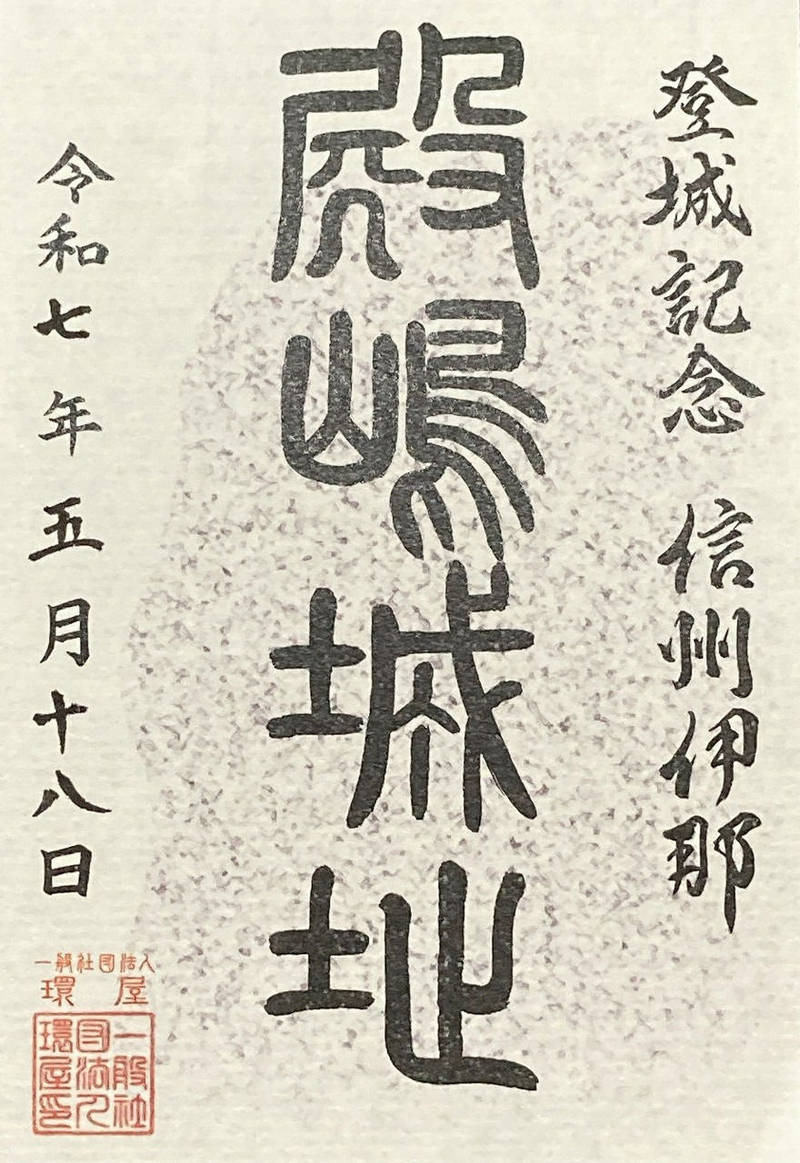 登城記念 信州伊那
殿嶋城址
令和七年五月十八日
一般社団法人
環屋
一般社
団法人
環屋印